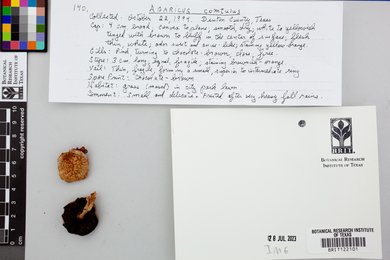 140. AGARICUS comtulus
Collected: October 22, 1994. Denton County, Texas
Cap: 4 cm broad, convex to plane, smooth, dry, white to yellowish
tinged with brown to buff in the center of surface, flesh
thin, white; odor sweet and anise-like; staining yellow-orange.
Gills: Pink turning to chocolate-brown, close, free.
Stipe: 3 cm long, equal, fragile, staining brownish-orange.
Veil: Thin, fragile, forming a small, superior to intermediate ring
Spore Print: Chocolate-brown
Habitat: grass (mowed) in city park lawn
Comment: Small and delicate. Fruited after very heavy fall rains.
BRIT
BOTANICAL RESEARCH
INSTITUTE OF TEXAS
28 JUL 2023
BOTANICAL RESEARCH INSTITUTE
OF TEXAS
BRIT122101